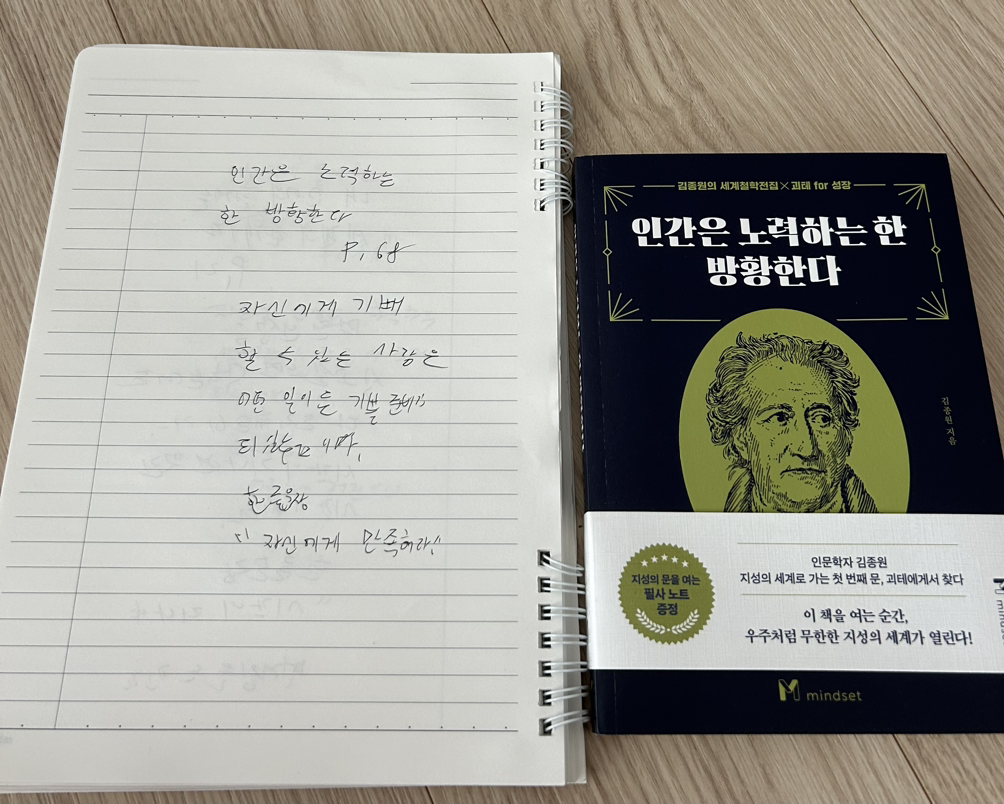 인간은 노력하는
한 방황한다
P. 68
자신에게 기뻐
할 수 있는 사람은
어떤 일이든 기쁠 준비가
되
한줄문장
"자신에게 만족하라"
김종원의 세계철학전집×괴테 for 성장
인간은 노력하는 한
방황한다
김종원 지음
지성의 문을 여는
필사 노트
증정
인문학자 김종원
지성의 세계로 가는 첫 번째 문, 괴테에게서 찾다
이 책을 여는 순간,
우주처럼 무한한 지성의 세계가 열린다!
mindset